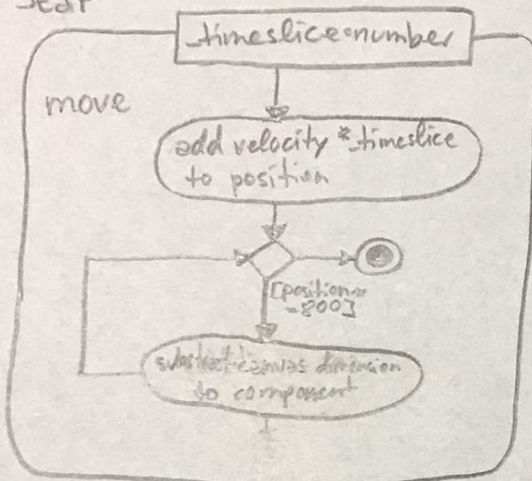 _timeslice:number
move
add velocity *_timeslice
to position
[position
-800]
dimension
to component